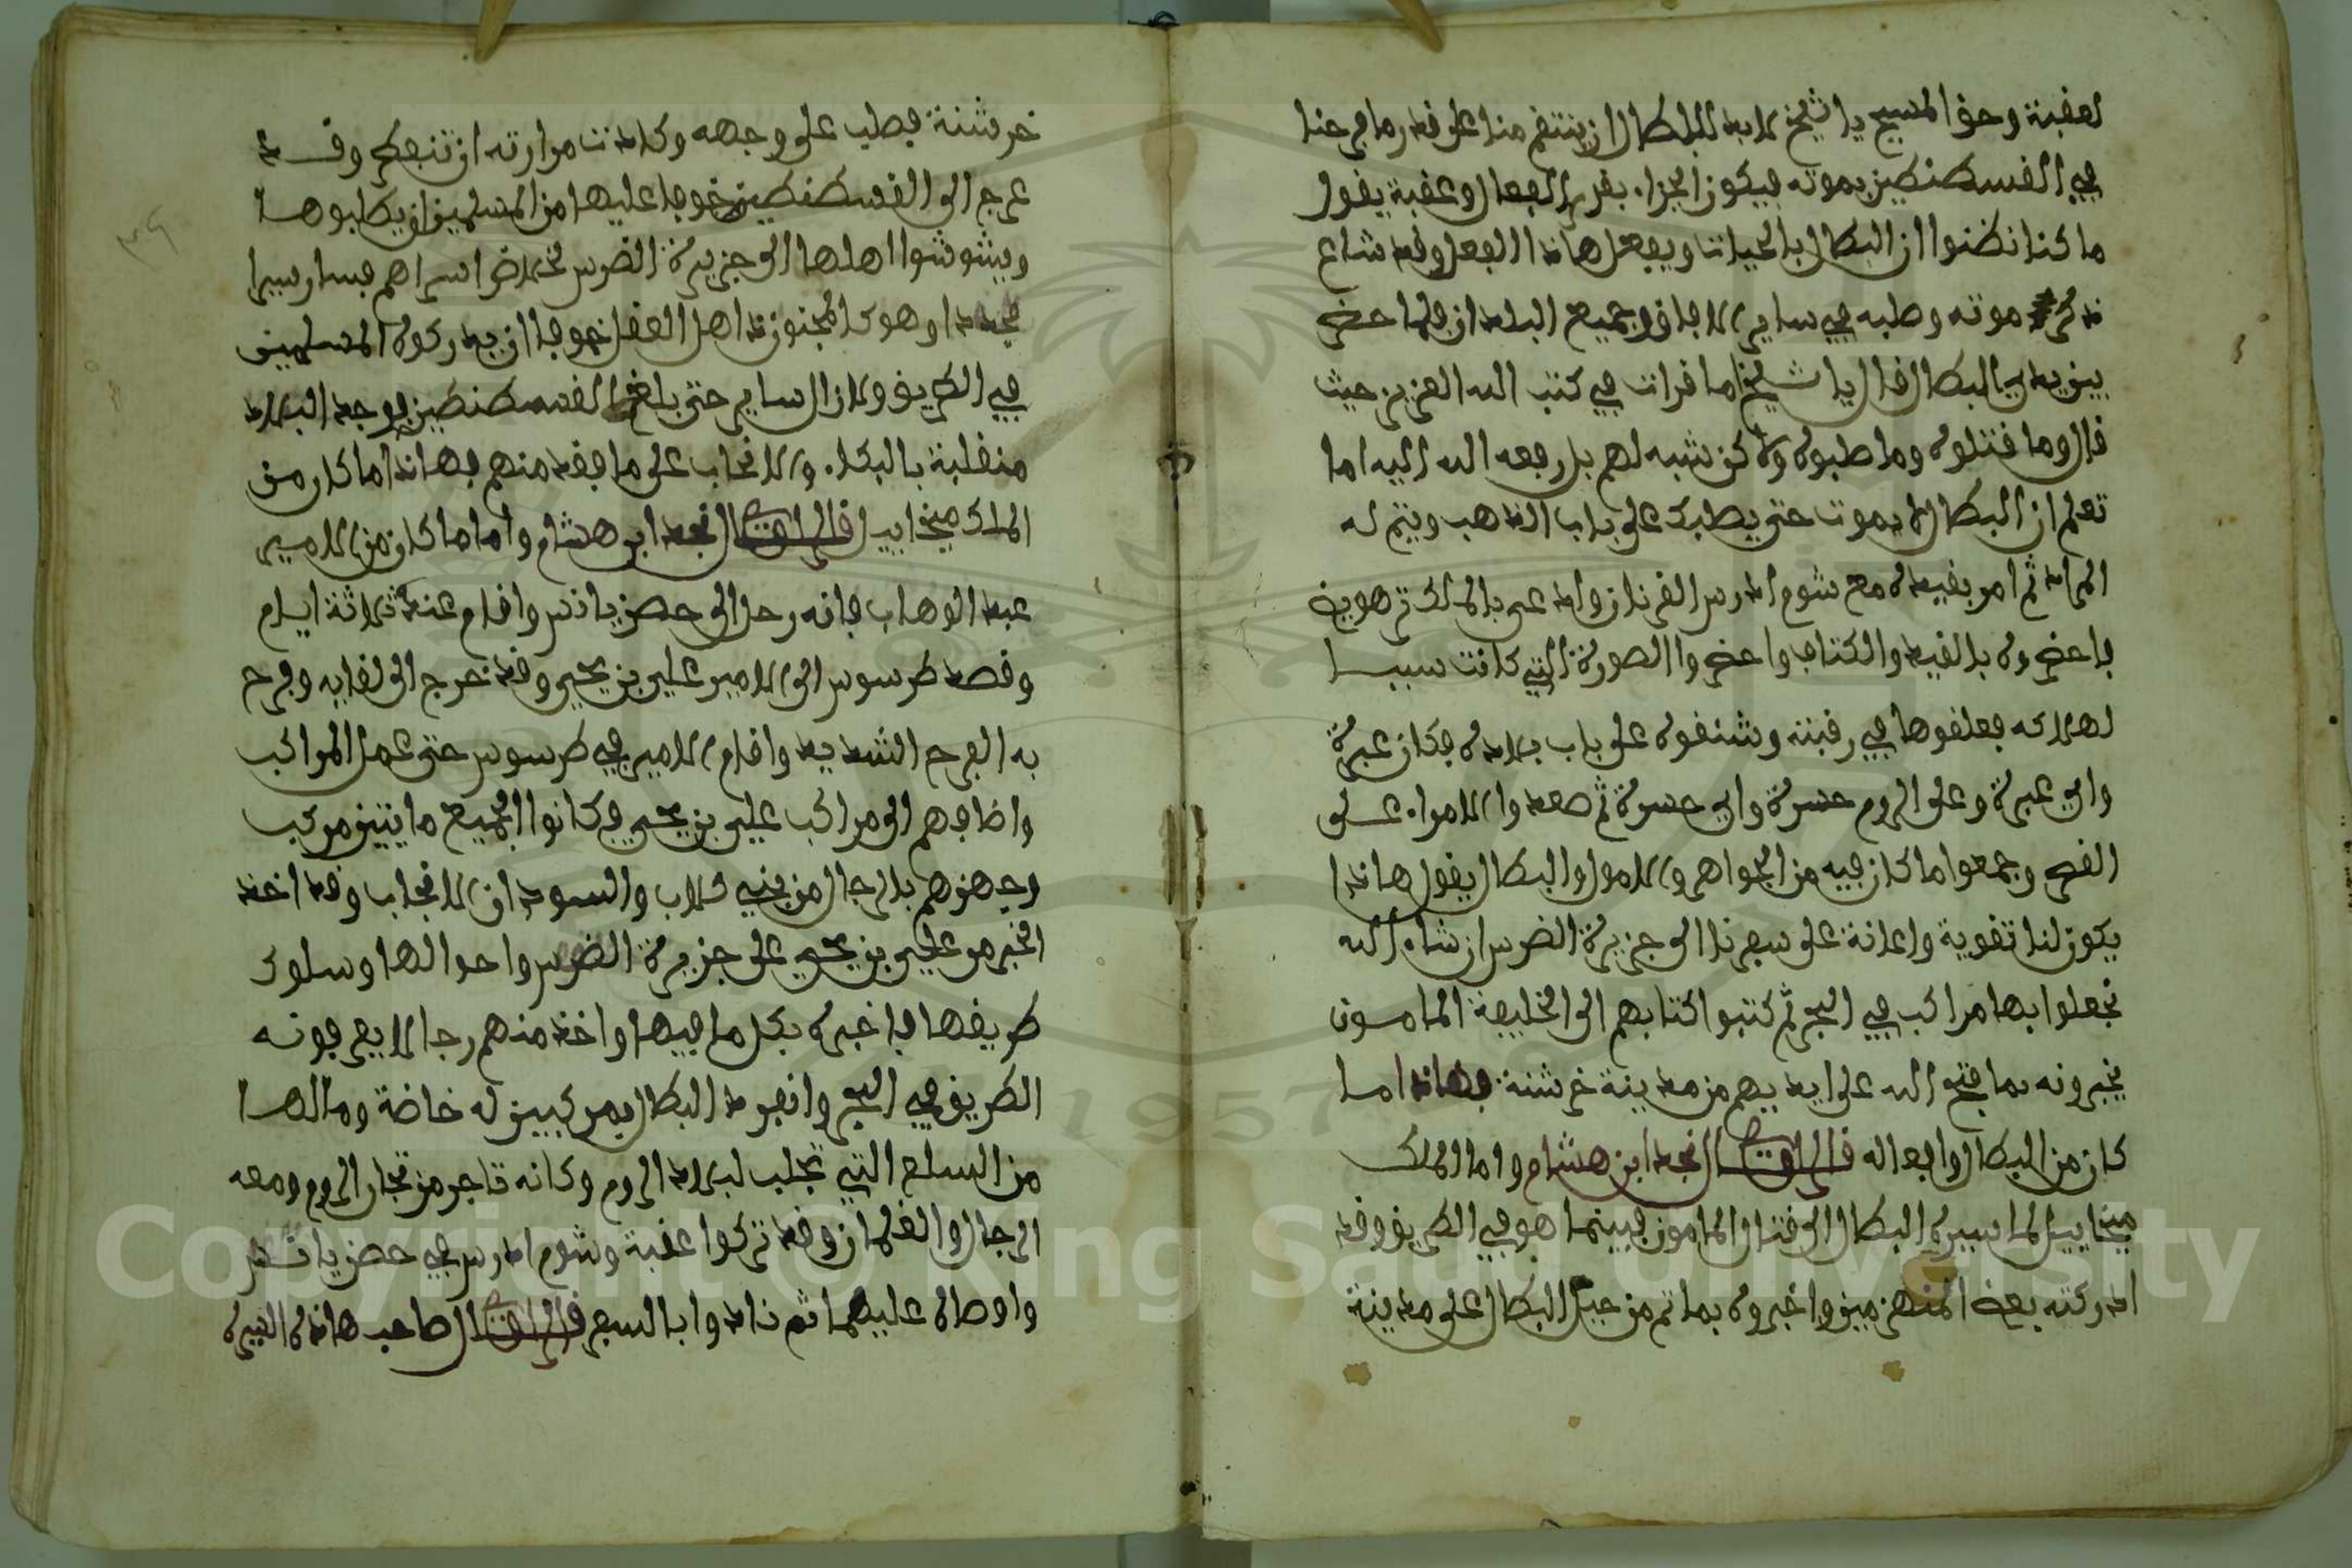 لعقبة وحق المسيح يا شيخ لابد للبطال ان ينتقم منا على قدر ما فرحنا
في القسطنطين بموته فيكون الجزاء بقدر الفعال وعقبة يقول
ما كنا نظنوا ان البطال بالحيات ويفعل هاذا الفعل وقد شاع
ذكر موته وصلبه في ساير الافاق وجميع البلدان فلما حضر
بين يدي البطال قال يا شيخ اما قرات في كتب الله العزيز حيث
قال وما قتلوه وما صلبوه ولاكن شبه لهم بل رفعه الله اليه اما
تعلم ان البطال لا يموت حتى يصلبك على باب الذهب ويتم له
المراد ثم امر بقيده مع شوم ادرس الفرنان وادعى بالملك ترهوية
فاحضروه بالقيد والكتاب واحضروا الصورة التي كانت سببا
لهلاكه فعلقوها في رقبته وشنقوه على باب بلاده فكان عبرة
واي عبرة وعلى الروم حسرة واي حسرة ثم صعدوا الامراء على
القصر وجمعوا ما كان فيه من الجواهر والاموال والبطال يقول هاذا
يكون لنا تقوية واعانة على سفرنا الى جزيرة الضرس ان شاء الله
نجعلوا بها مراكب في البحر ثم كتبوا كتابهم الى الخليفة المامون
يخبرونه بما فتح الله على ايديهم من مدينة خرشنة فهاذا ما
كان من البطال وافعاله قال الراوي نجد ابن هشام واما الملك
ميخاييل لما سيره البطال الى قتال المامون فبينما هو في الطريق وقد
ادركته بعض المنهزمين واخبروه بما تم من حيل البطال على مدينة
خرشنة فصلب على وجهه وكادت مرارته ان تنفطر وقد
عرج الى القسطنطين خوفا عليها من المسلمين ان يطلبوها
ويشوشوا اهلها الى جزيرة الضرس لخلاص اسراهم فسار سيرا
مجدا وهو كالمجنون ذاهل العقل خوفا ان يدركوه المسلمين
في الطريق ولازال ساير حتى بلغ القسطنطين فوجد البلاد
منقلبة بالبكاء والانحاب على ما فقد منهم فهاذا ما كان من
الملك ميخاييل قال الراوي نجد ابن هشام واما ما كان من الامير
عبد الوهاب فانه رحل الى حصن يانس واقام عنده ثلاثة ايام
وقصد طرسوس الى الامير علي بن يحيى وقد خرج الى لقايه وفرح
به الفرح الشديد واقام الامير في طرسوس حتى عمل المراكب
واضافهم الى مراكب علي بن يحيى فكانوا الجميع مايتين مركب
وجهزهم بالرجال من بني كلاب والسودان الانجاب وقد اخذ
الخبر من علي بن يحيى على جزيرة الضرس واحوالها وسلوك
طريقها فاخبره بكل ما فيها واخذ منهم رجالا يعرفونه
الطريق في البحر وانفرد البطال بمركبين له خاصة وملاها
من السلع التي تجلب لبلاد الروم وكانه تاجر من تجار الروم ومعه
الرجال والغلمان وقد تركوا عقبة وشوم ادرس في حصن يانس
واوصاه عليهما ثم نادوا بالسفر قال الراوي صاحب هاذه السيرة
Copyright © King Saud University
1957